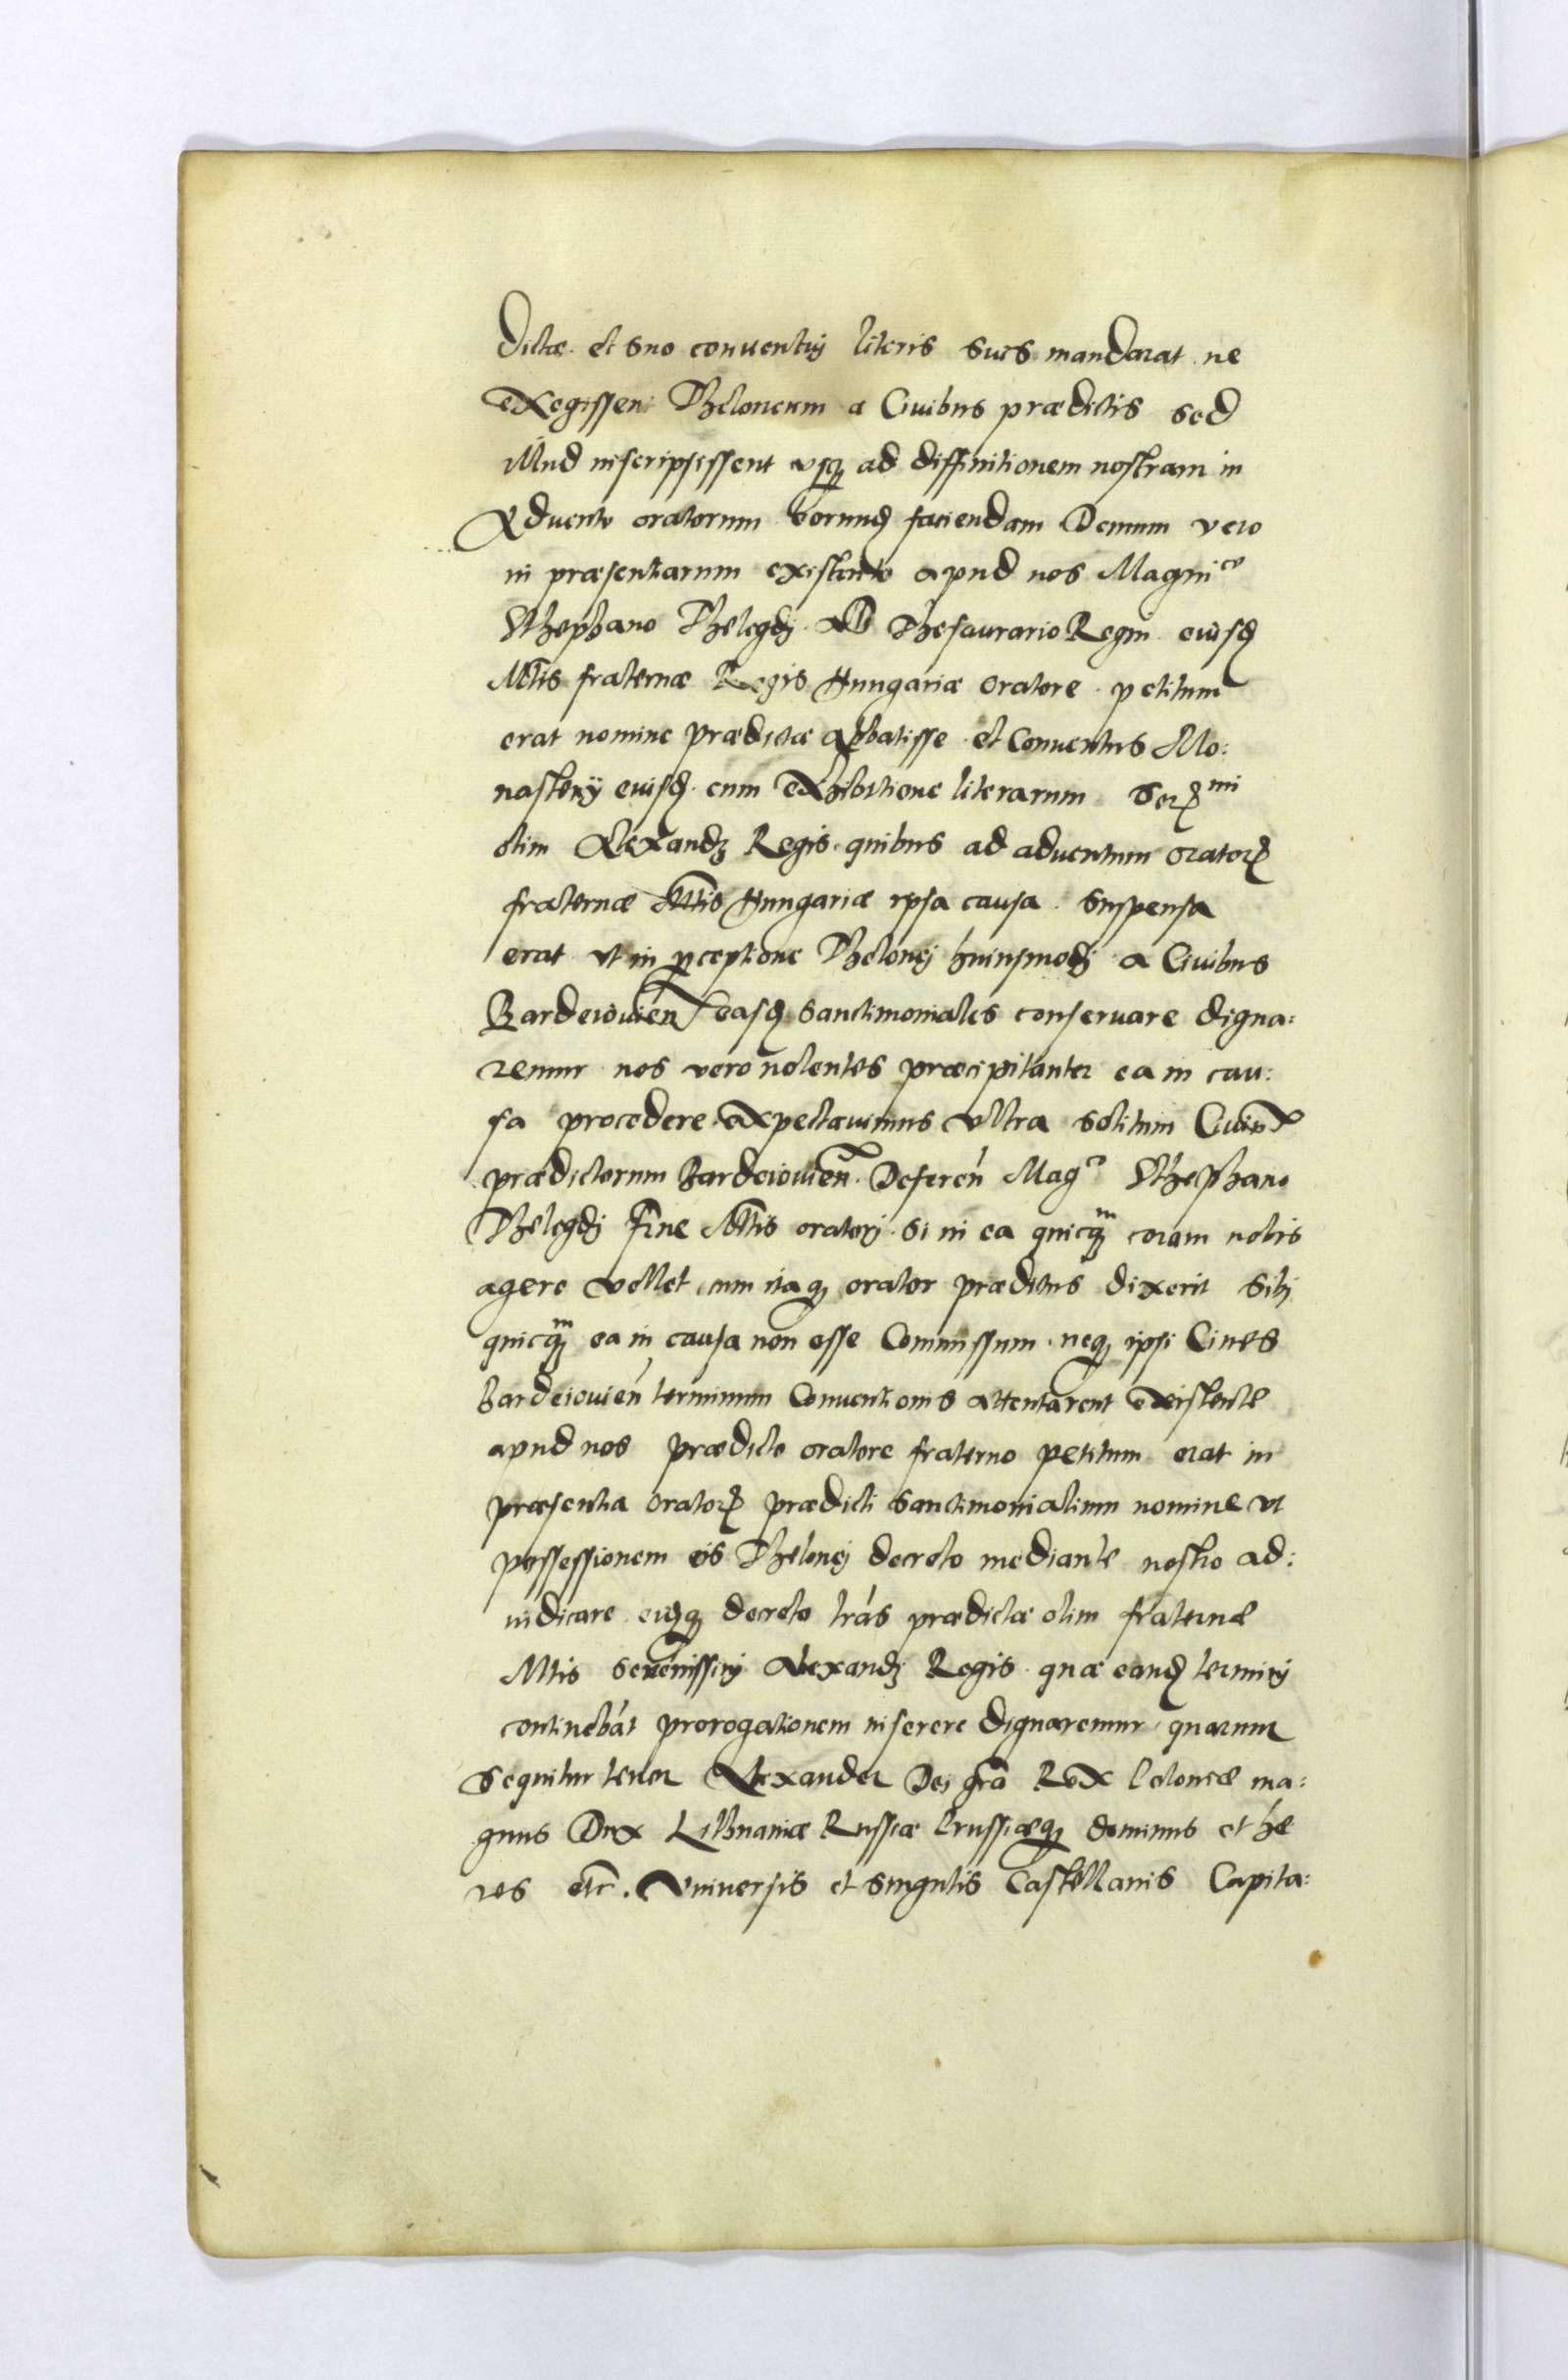 dictæ et suo conventuj literis suis mandarat ne
exegissent Theloneum a Civibus prædictis sed
illud inscripsissent usq ad diffinitionem nostram in
Adventu oratorum horund faciendam Demum vero
in præsentiarum existente apud nos Magnico
Sthephano Thelegdj AB Thesaurario Regni eiusd
Mtis fraternæ Regis Hungariæ oratore petitum
erat nomine prædictæ Abbatisse et Conventus Mo:
nasterij eiusd cum exhibitione literarum Sermi
olim Alexandrj Regis quibus ad adventum orator
fraternæ Mtis Hungariæ ipsa causa suspensa
erat ut in perceptione Thelonej huiusmodj a Civibus
Bardeiovien easd sanctimoniales conservare digna:
remur nos vero nolentes præcipitanter ea in cau:
sa procedere expectavimus ultra solitum Civium
prædictorum Bardeiovien Deferen Magco Sthephano
Thelegdj frne Mtis oratorj si in ea quicqm coram nobis
agere vellet cum itaq orator prædictus dixerit sibj
quicqm ea in causa non esse Commissum neq ipsi Cives
bardeiovien terminum Conventionis attentarent existente
apud nos prædicto oratore fraterno petitum erat in
præsentia orator prædicti sanctimonialium nomine ut
possessionem eis Thelonej decreto mediante nostro ad:
iudicare eidq decreto lras prædictæ olim fraternæ
Mtis serenissimj Alexandrj Regis quæ eand terminj
continebat prorogationem inserere dignaremur quarum
sequitur tenor Alexander Dei gra Rex Poloniæ ma:
gnus Dux Lithuaniæ Russiæ Prussiæq dominus et hæ
res etc. Universis et singulis Castellanis Capita: